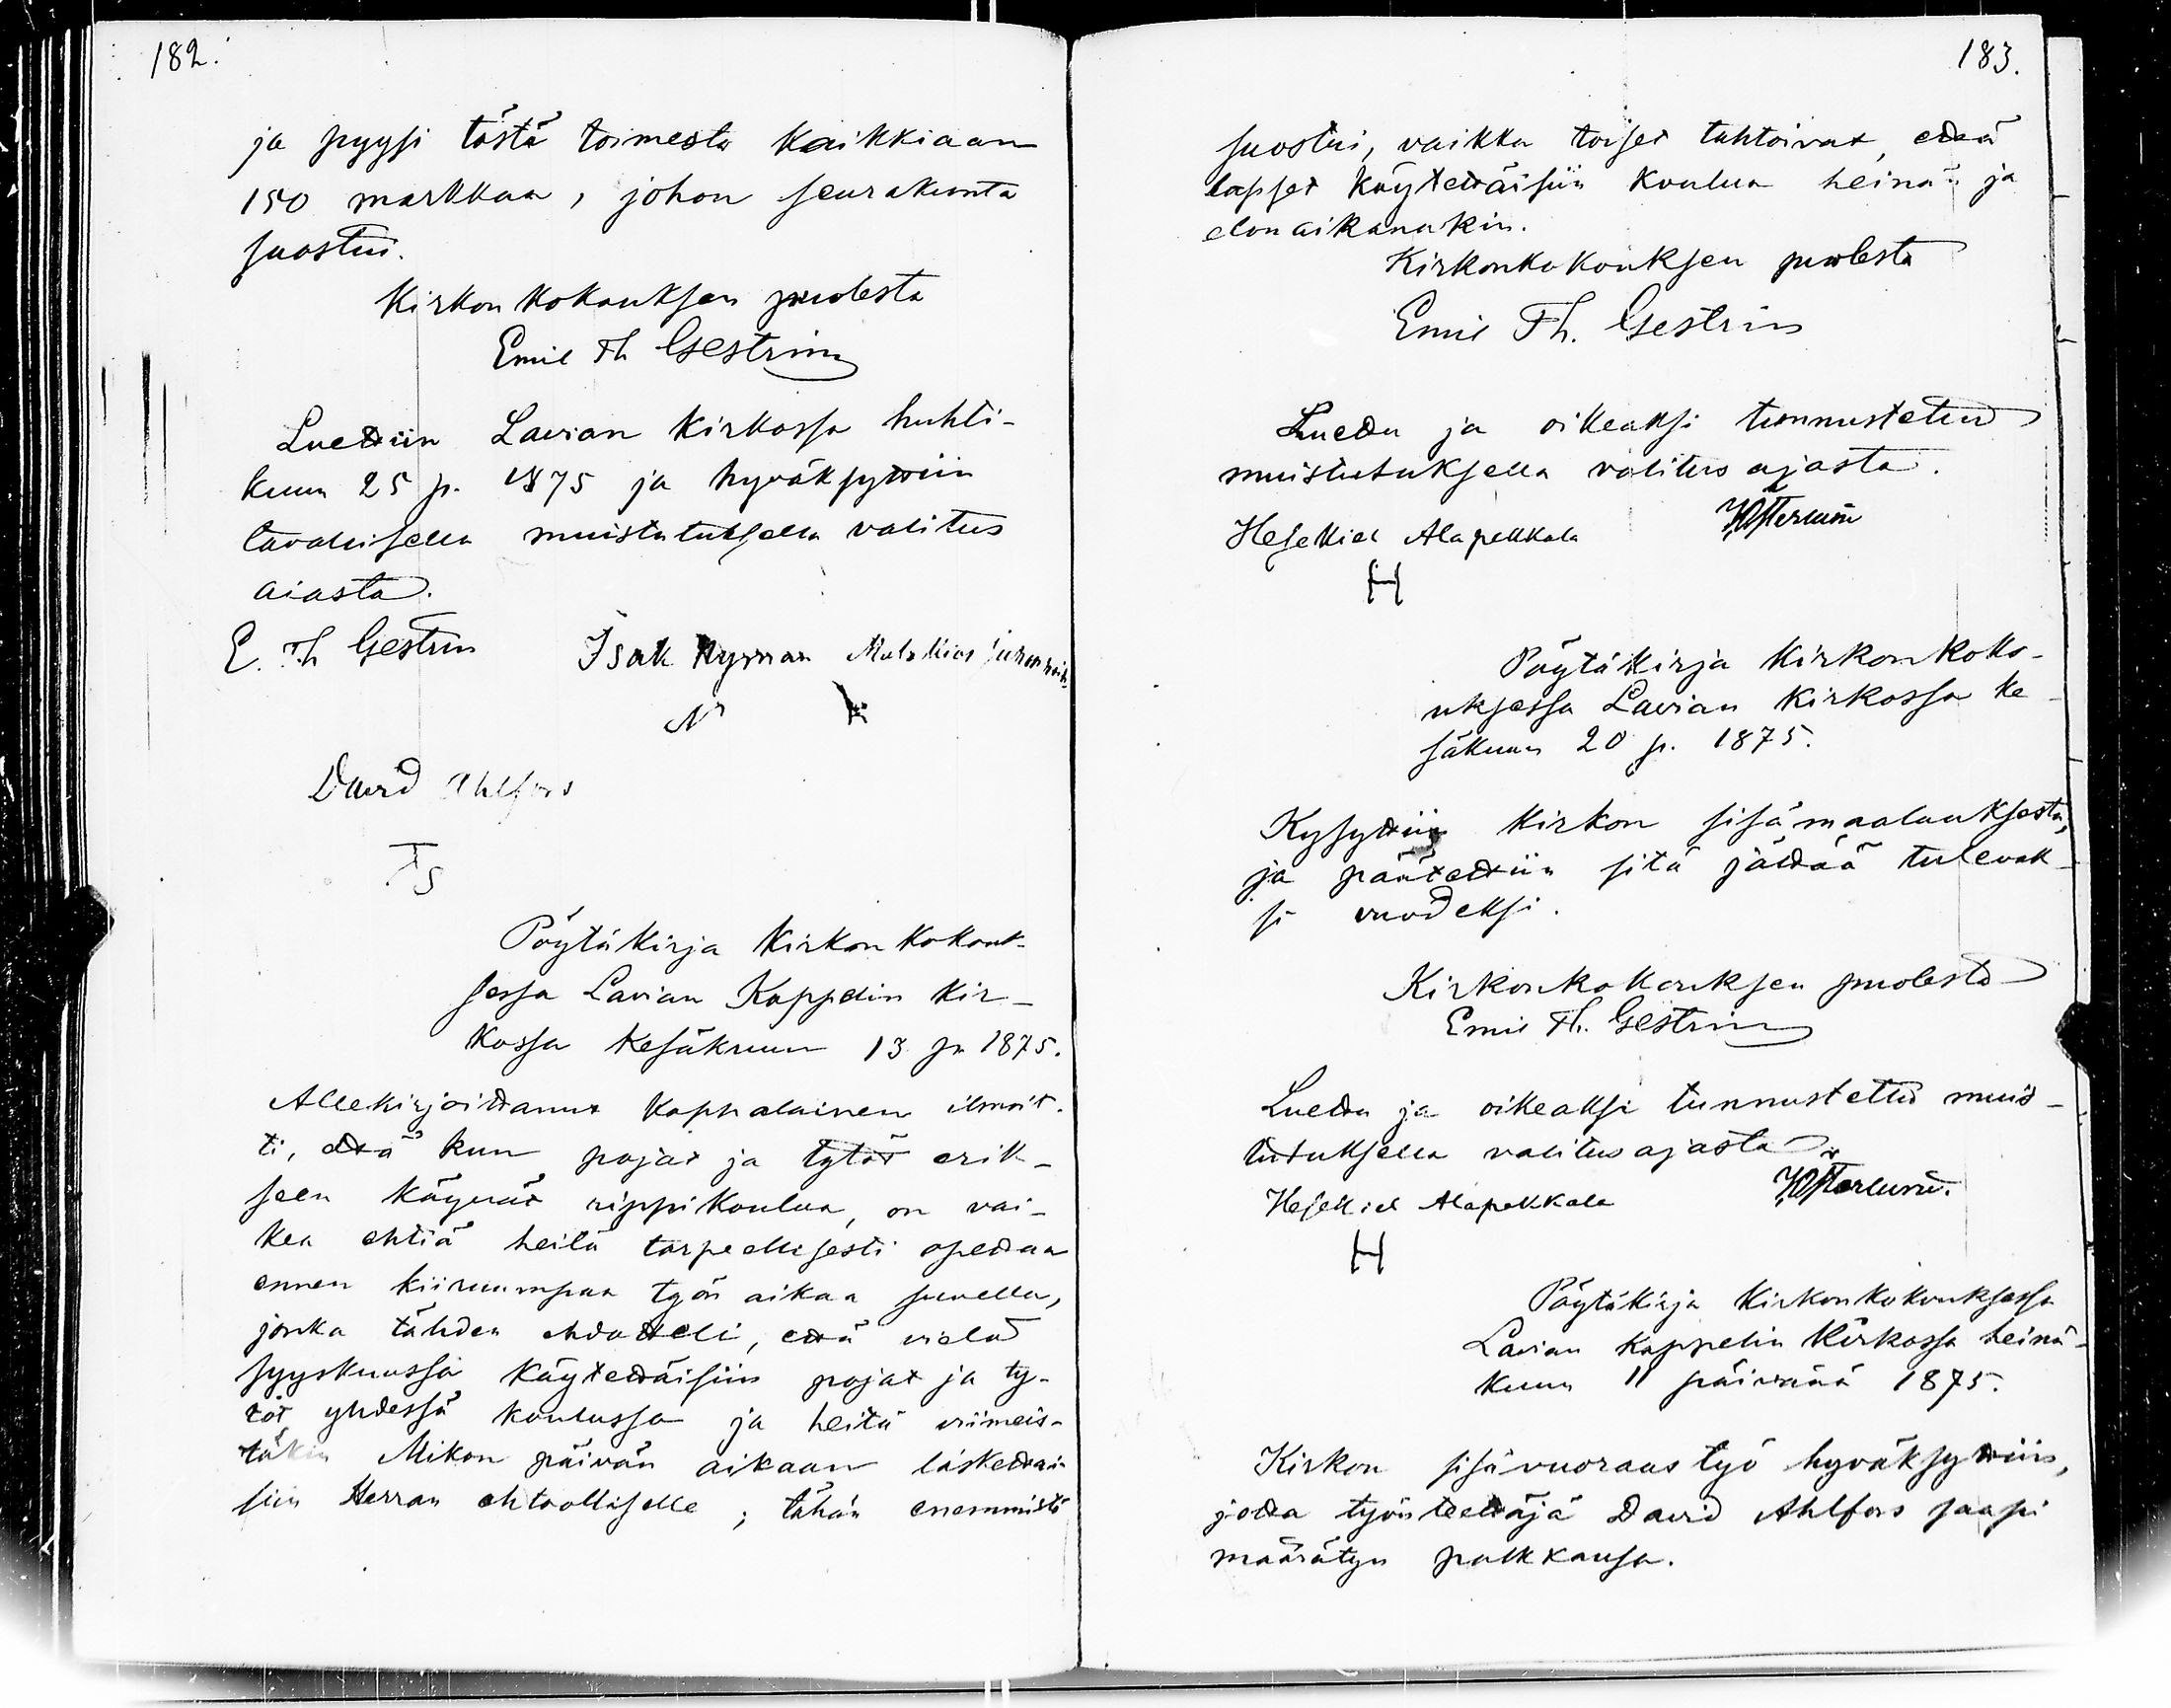 182.
ja pyysi tästä toimesta kaikkiaan
150 markkaa, johon seurakunta
suostui.
Kirkonkokouksen puolesta
Emil Th Gestrin
Luettiin Lavian kirkossa huhti-
kuun 25 p. 1875 ja hyväksyttiin
tavallisella muistutuksella valitus
aiasta.
E. Th Gestrin Isak Nyman Malakias
N
David Ahlfors
Pöytäkirja kirkonkokouk-
sessa Lavian Kappelin kir-
kossa kesäkuun 13 p. 1875.
Allekirjoittanut kappalainen ilmoit-
ti, että kun pojat ja tytöt erik-
seen käyvät rippikoulua, on vai-
kea ehtiä heitä tarpeellisesti opettaa
ennen kiiruumpaa työn aikaa suvella,
jonka tähden ehdotteli, että vielä
syyskuussa käytettäisiin pojat ja ty-
töt yhdessä koulussa ja heitä viimeis-
täkin Mikon päivän aikaan laskettai-
siin Herran ehtoolliselle; tähän enemmistö
183.
suostui, vaikka toiset tahtoivat, että
lapset käytettäisiin koulua heinän ja
elonaikanakin.
Kirkonkokouksen puolesta
Emil Th. Gestrin
Luettu ja oikeaksi tunnustettu
muistutuksella valitus ajasta.
Hesekiel Alapekkala J Österlund
H
Pöytäkirja kirkonkoko-
uksessa Lavian kirkossa ke-
säkuun 20 p. 1875.
Kysyttiin kirkon sisämaalauksesta,
ja päätettiin sitä jättää tulevak-
si vuodeksi.
Kirkonkokouksen puolesta
Emil Th. Gestrin
Luettu ja oikeaksi tunnustettu muis-
tutuksella valitusajasta
Hesekiel Alapekkala J Österlund.
H
Pöytäkirja kirkonkokouksessa
Lavian kappelin kirkossa heinä-
kuun 11 päivänä 1875.
Kirkon sisävuoraus työ hyväksyttiin,
jotta työnteettäjä David Ahlfors saapi
määrätyn palkkansa.